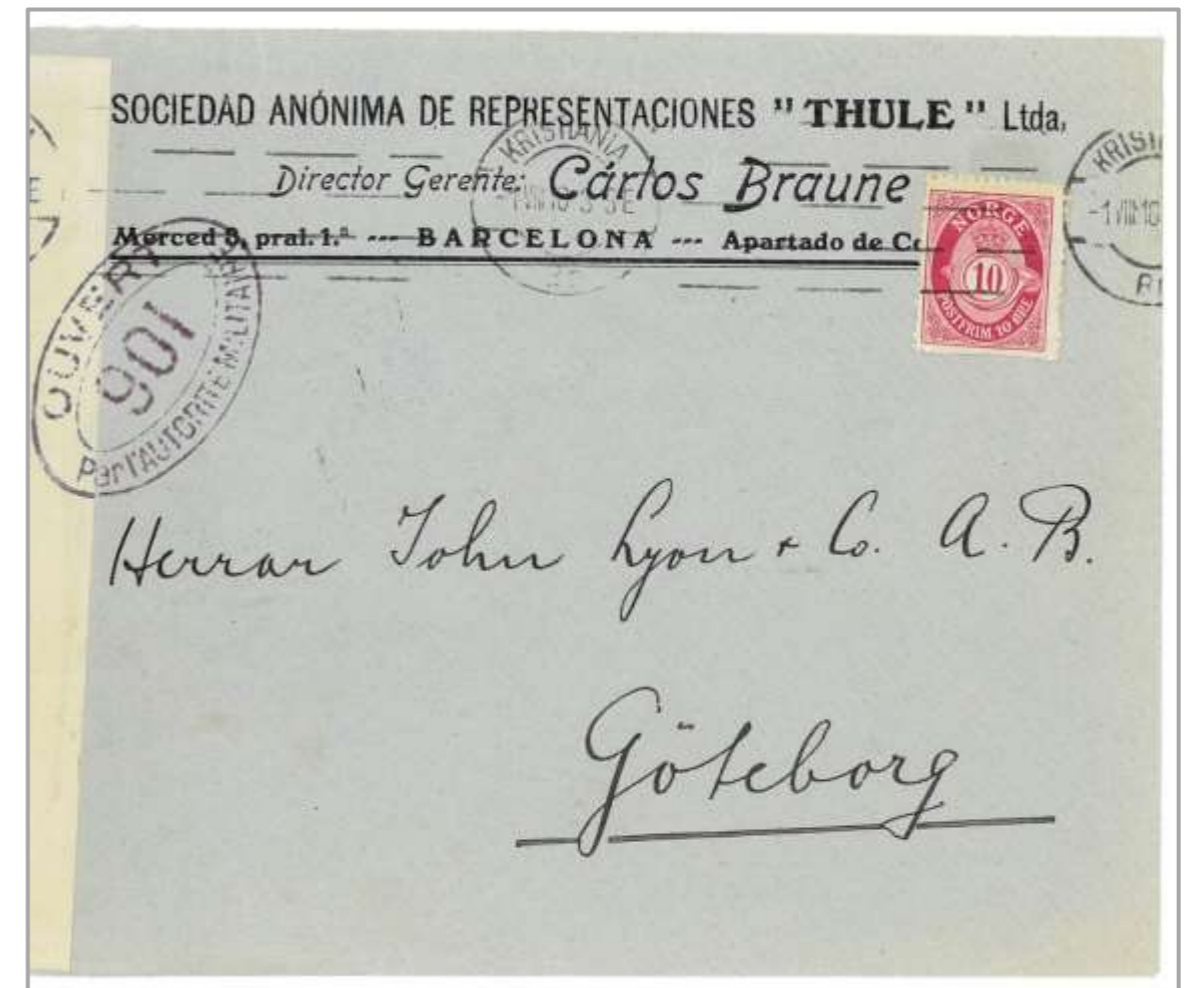 SOCIEDAD ANÓNIMA DE REPRESENTACIONES "THULE" Ltda,
Director Gerente: Cárlos Braune
Merced 8, pral. 1.ª --- BARCELONA --- Apartado de Co
KRISTIANIA
KRISTI
-1 VIII 18
NORGE
10
POSTFRIM. 10 ØRE
OUVERT
901
Par l'AUTORITÉ MILITAIRE
Herrar John Lyon & Co. A. B.
Göteborg